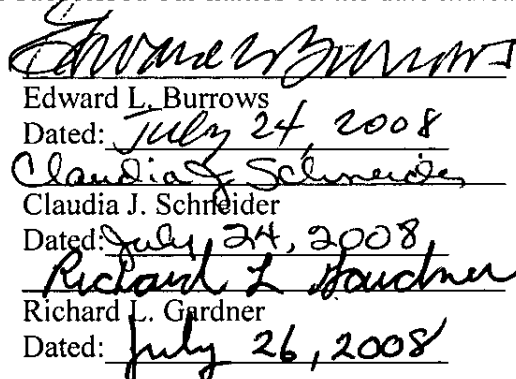 names on the date
Edward L Burrows
Edward L. Burrows
Dated: July 24, 2008
Claudia J Schneider
Claudia J. Schneider
Dated: July 24, 2008
Richard L Gardner
Richard L. Gardner
Dated: July 26, 2008